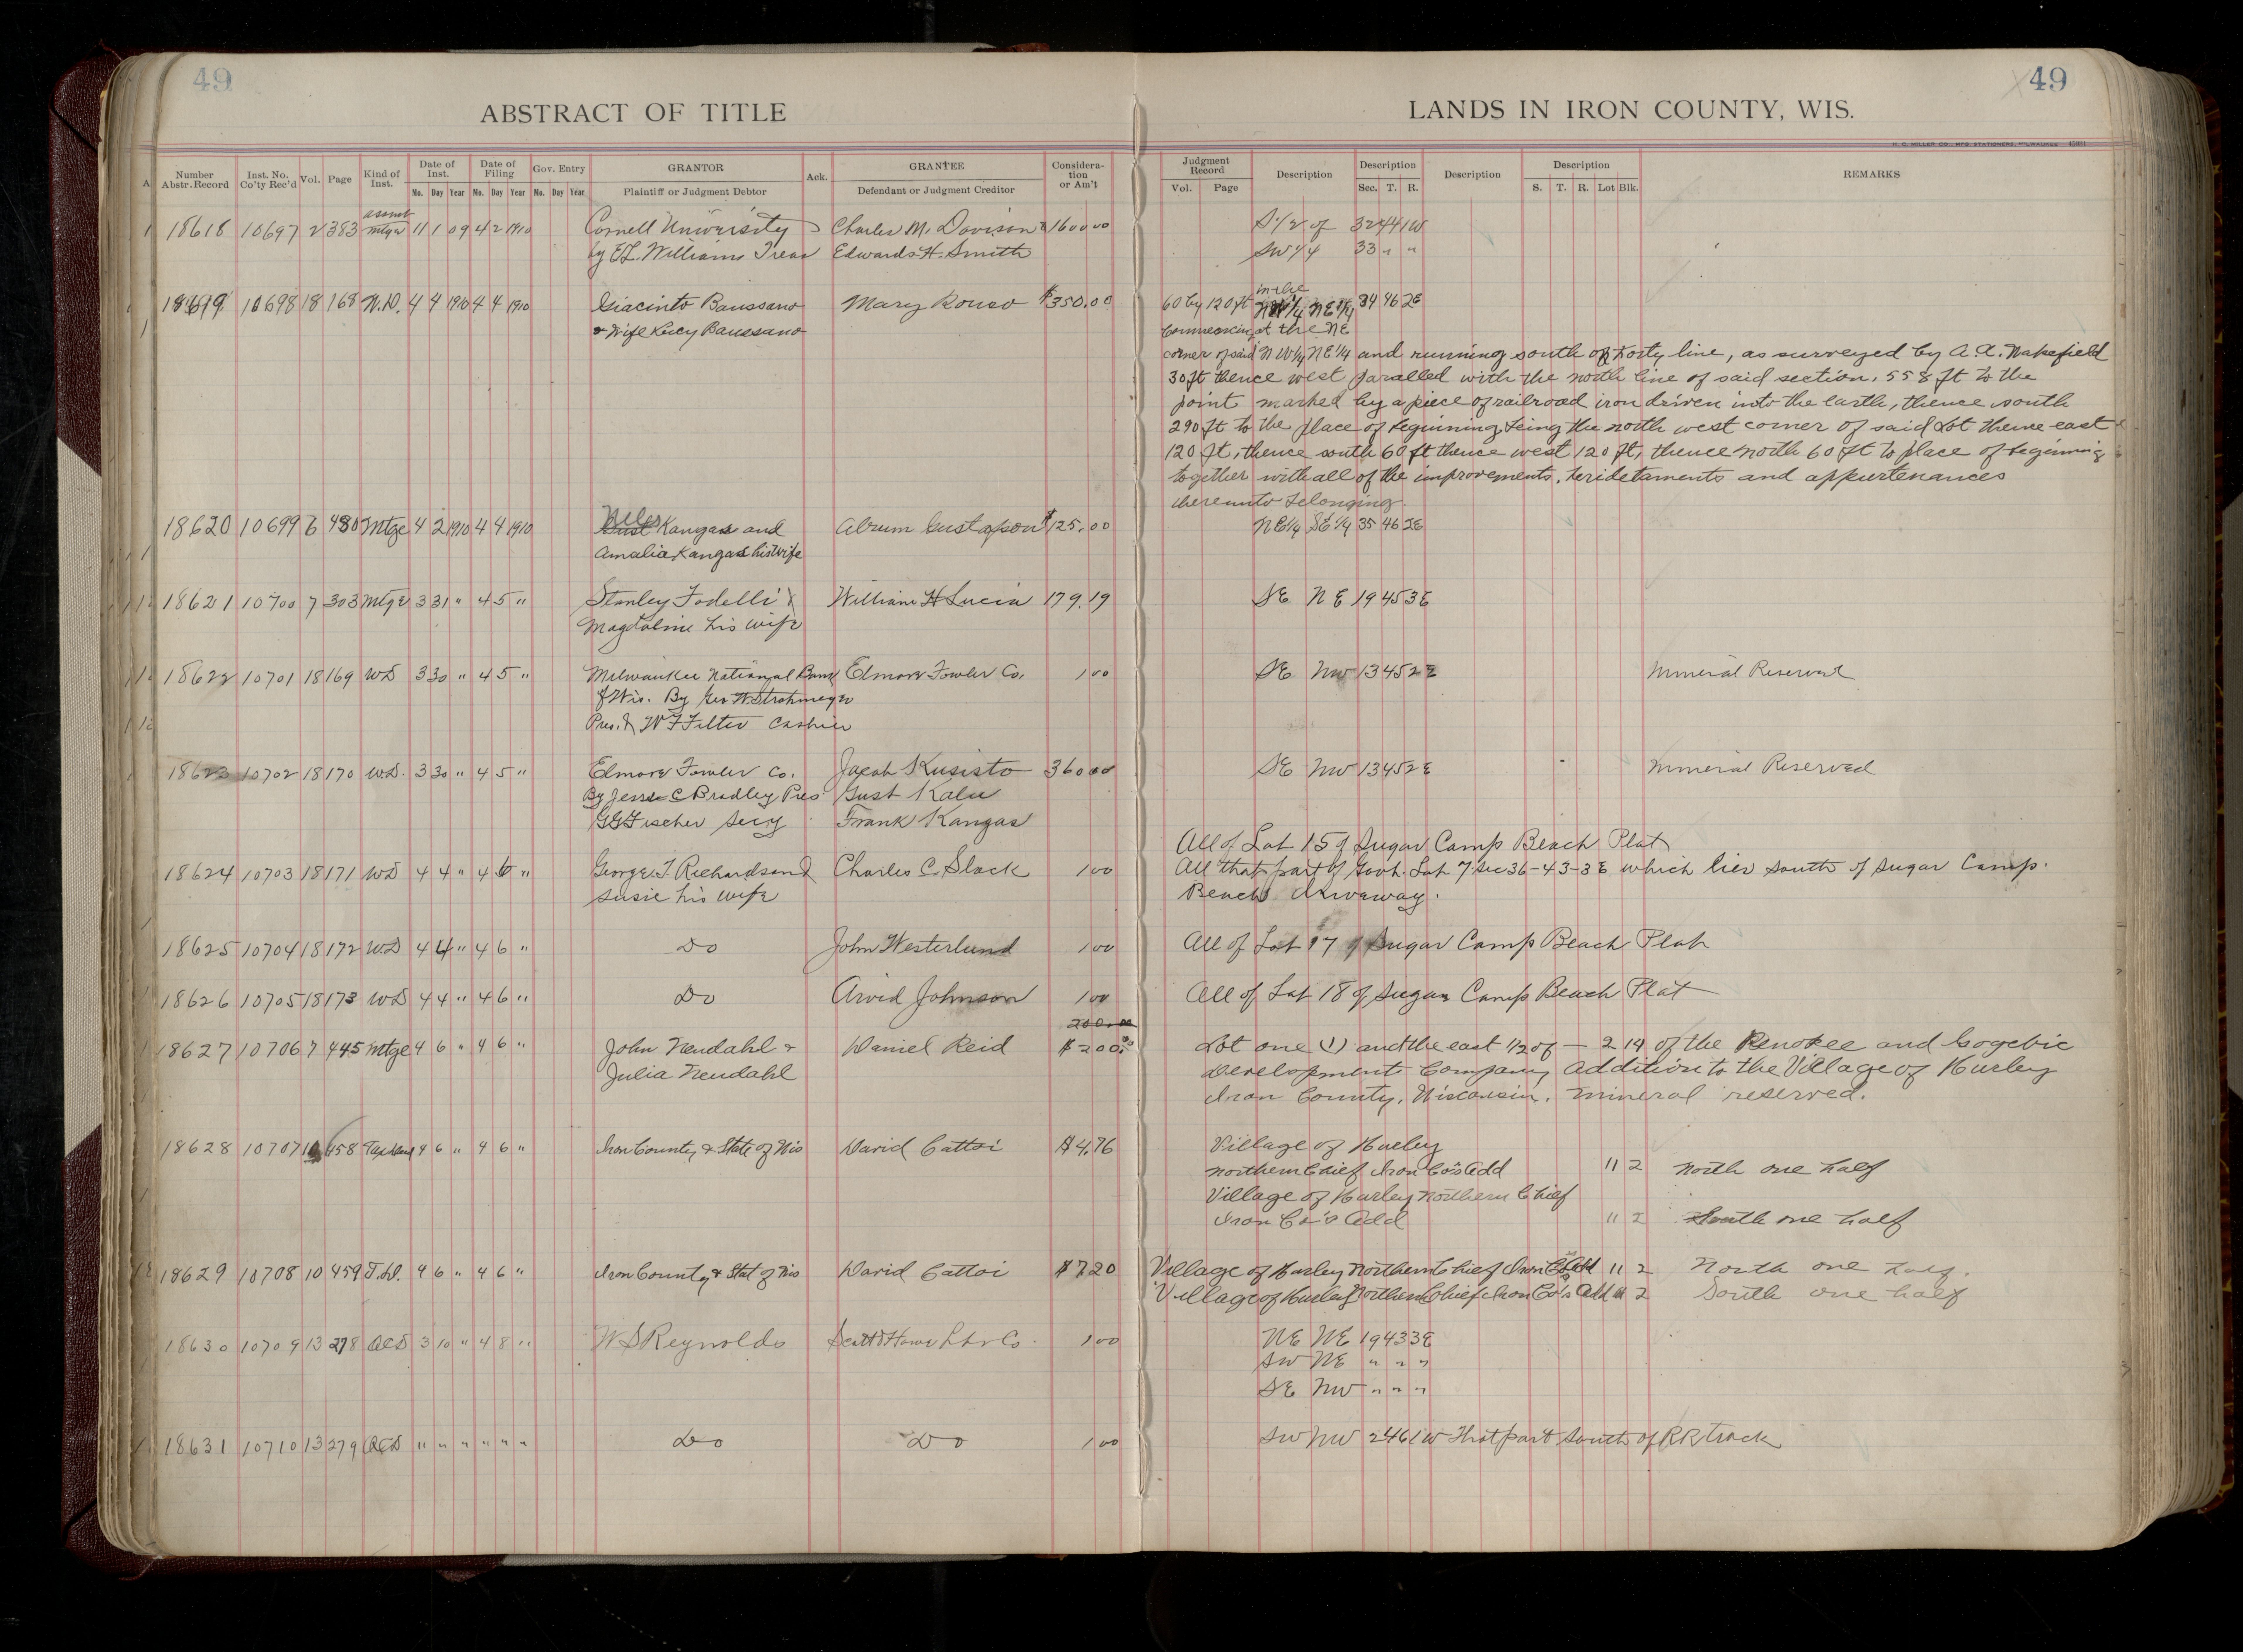 49
49
ABSTRACT OF TITLE
LANDS IN IRON COUNTY, WIS.
H. C. MILLER CO., MFG. STATIONERS, MILWAUKEE
Number Abstr. Record Inst. No. Co'ty Rec'd Vol. Page Kind of Inst. Date of Inst. Date of Filing Gov. Entry GRANTOR Ack. GRANTEE Considera-tion or Am't Judgment Record Description Description Description Description REMARKS
Mo. Day Year Mo. Day Year No. Day Year Plaintiff or Judgment Debtor Defendant or Judgment Creditor Vol. Page Sec. T. R. S. T. R. Lot Blk.
assmt
18618 10697 2 383 mtge 11 1 09 4 2 1910 Cornell University Charles M. Davison & 1600 00 S 1/2 of 32 44 1W
by E.L. Williams Treas Edwards H. Smith SW 1/4 33 " "
in the
18619 10698 18 168 W.D. 4 4 1910 4 4 1910 Giacinto Baussano Mary Rouso $350.00 60 by 120 ft NW 1/4 NE 1/4 34 46 2E
& Wife Lucy Baussano Commencing at the NE
corner of said NW 1/4 NE 1/4 and running south on forty line, as surveyed by A. A. Wakefield
30 ft thence west paralled with the north line of said section, 558 ft to the
point marked by a piece of railroad iron driven into the earth, thence south
290 ft to the place of beginning, being the north west corner of said Lot thence east
120 ft, thence south 60 ft thence west 120 ft, thence north 60 ft to place of beginning
together with all of the improvements, heridetaments and appurtenances
thereunto belonging.
18620 10699 6 480 Mtge 4 2 1910 4 4 1910 Kangas and Abrum Gustafson $125.00 NE 1/4 SE 1/4 35 46 2E
Amalia Kangas his wife
18621 10700 7 303 Mtge 3 31 " 4 5 " Stanley Fodelli & William H Lucia 179.19 SE NE 19 45 3E
Magdaline his wife
18622 10701 18 169 WD 3 30 " 4 5 " Milwaukee National Bank Elmore Fowler Co. 1 00 SE NW 13 45 2E Mineral Reserved
of Wis. By Geo W. Strohmeyer
Pres. & W F Filter Cashier
18623 10702 18 170 W.D. 3 30 " 4 5 " Elmore Fowler Co. Jacob Kusisto 360 00 SE NW 13 45 2E Mineral Reserved
By Jesse C Bradley Pres Gust Kalu
G G Fischer Secy Frank Kangas
All of Lot 15 of Sugar Camp Beach Plat
18624 10703 18 171 WD 4 4 " 4 6 " George T. Richardson & Charles C. Slack 1 00 All that part of Govt. Lot 7 Sec 36-43-3E which lies south of Sugar Camp.
Susie his wife Beach driveway.
18625 10704 18 172 W.D 4 4 " 4 6 " Do John Westerlund 1 00 All of Lot 17 of Sugar Camp Beach Plat
18626 10705 18 173 WD 4 4 " 4 6 " Do Arvid Johnson 1 00 All of Lot 18 of Sugar Camp Beach Plat
200.00
18627 10706 7 445 Mtge 4 6 " 4 6 " John Nendahl & Daniel Reid $200.00 Lot one (1) and the east 1/2 of — 2 14 of the Penokee and Gogebic
Julia Nendahl Development Company Addition to the Village of Hurley
Iron County, Wisconsin. Mineral reserved.
18628 10707 10 458 Tax Deed 4 6 " 4 6 " Iron County & State of Wis David Cattoi $4.76 Village of Hurley
Northern Chief Iron Co's Add 11 2 North one half
Village of Hurley Northern Chief
Iron Co's Add 11 2 South one half
18629 10708 10 459 T.D. 4 6 " 4 6 " Iron County & Stat of Wis David Cattoi $7.20 Village of Hurley Northern Chief Iron Co's Add 11 2 North one half.
Village of Hurley Northern Chief Iron Co's Add 11 2 South one half
18630 10709 13 278 QCD 3 10 " 4 8 " W S Reynolds Scott & Howe Lbr Co. 1 00 NE NE 19 43 3E
SW NE " " "
SE NW " " "
18631 10710 13 279 QCD " " " " " " Do Do 1 00 SW NW 2 46 1W That part South of RR track